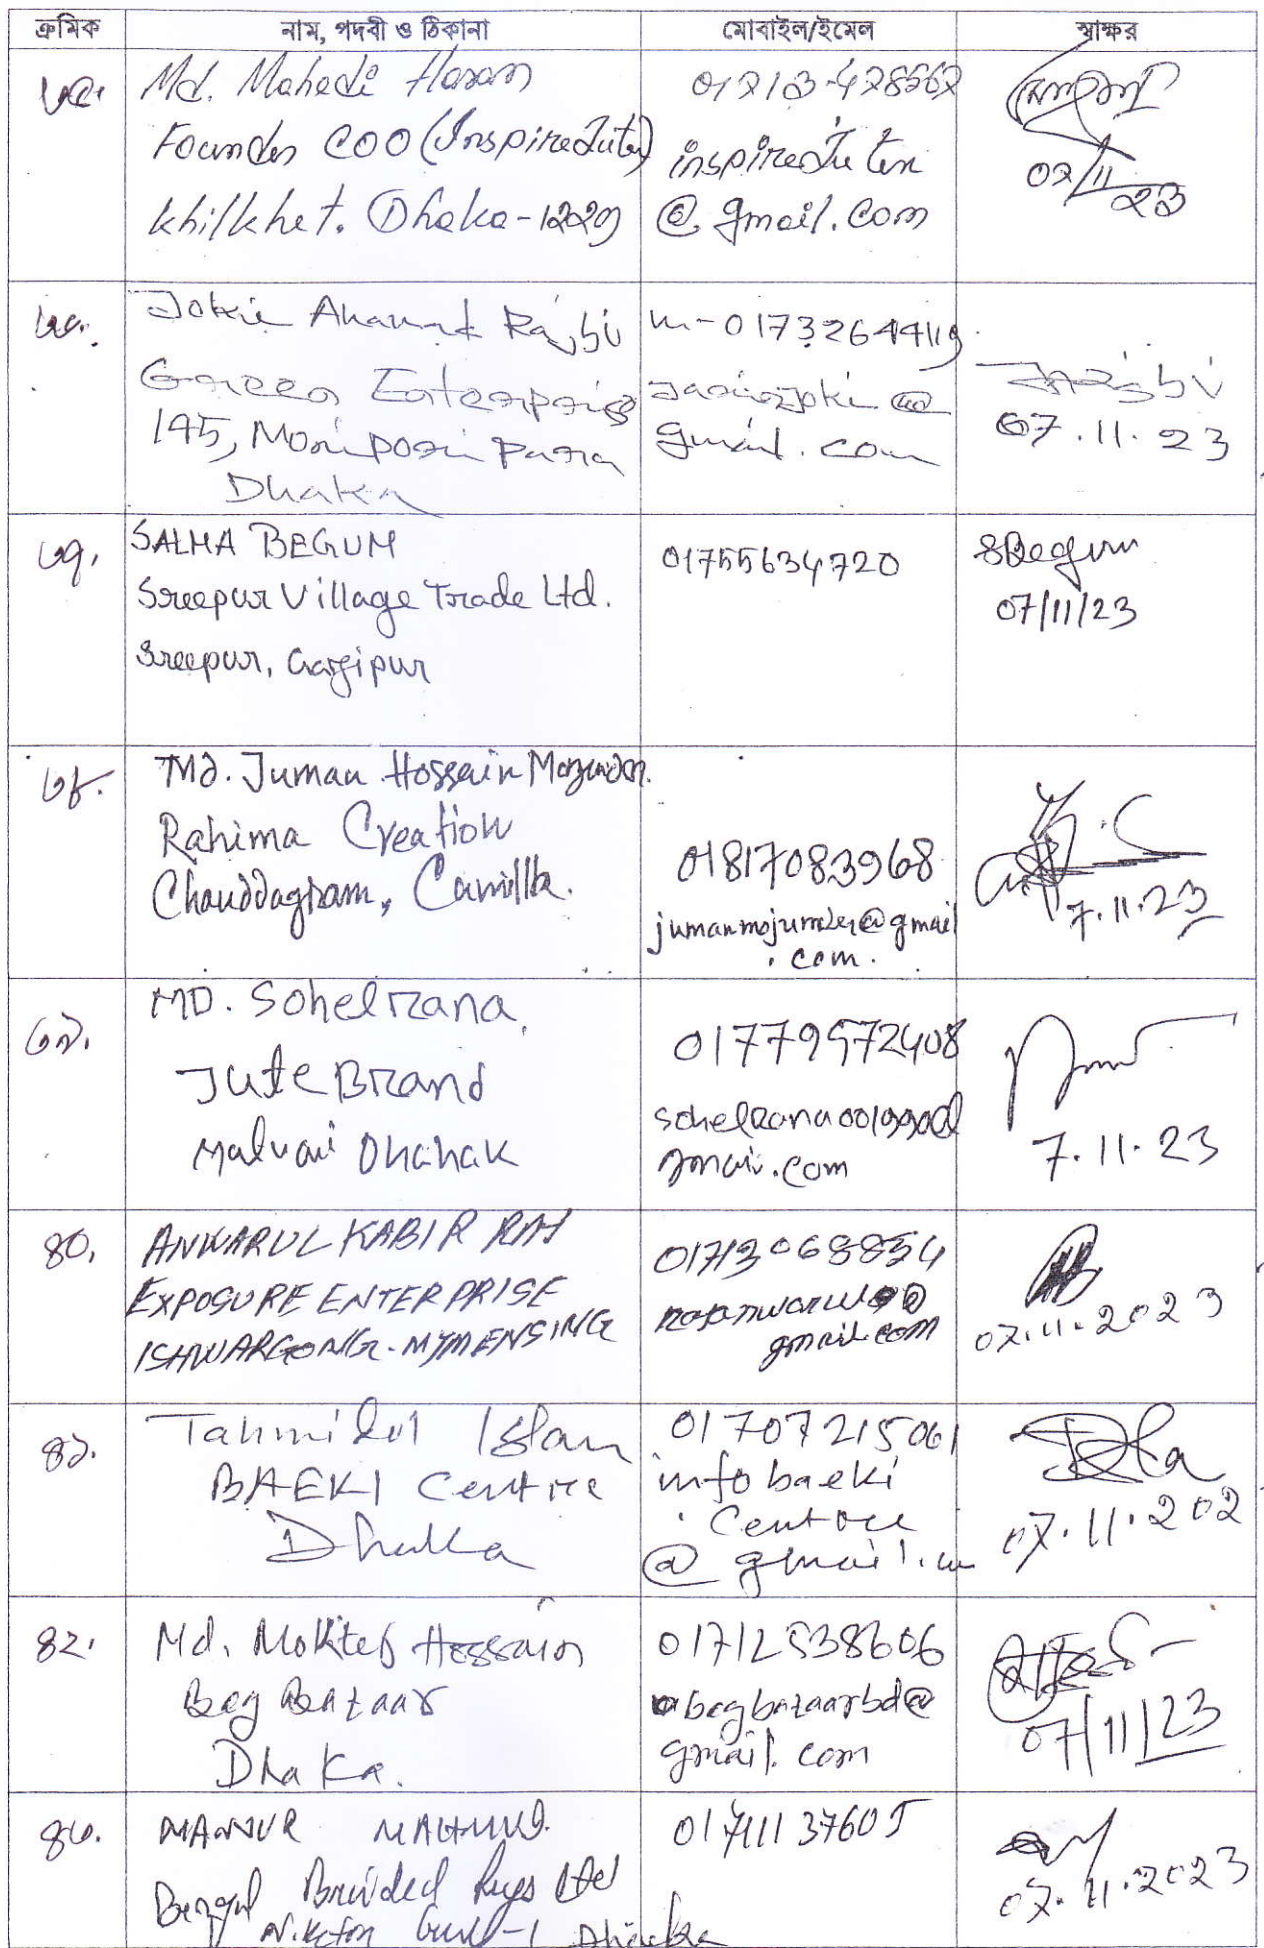 ক্রমিক নাম, পদবী ও ঠিকানা মোবাইল/ইমেল স্বাক্ষর
৩৫. Md. Mahedi Hasan
Founder COO (InspireJuten)
Khilkhet. Dhaka-1229
inspirejuten
@gmail.com
07/11/23
৩৬. Ahamed Rajbi
Green Enterprise
145, Monipori Para
Dhaka
m-01732644119
@
gmail.com
07.11.23
৩৭. SALMA BEGUM
Sreepur Village Trade Ltd.
Sreepur, Gazipur
01755634720
SBegum
07/11/23
৩৮. Md. Juman Hossain
Rahima Creation
Chauddagram, Comilla.
01817083968
jumanmojumder@gmail
.com.
7.11.23
৩৯. MD. Sohel rana,
Jute Brand
01779972408
7.11.23
৪০. ANWARUL KABIR
EXPOSURE ENTERPRISE
ISHWARGONG-MYMENSING
01713068854
gmail.com
07.11.2023
৪১. Tahmidul Islam
BAEKI Centre
Dhaka
01707215061
infobaeki
centre
@gmail.
07.11.202
৪২. Md. Hossain
Beg Bazaar
Dhaka.
01712538606
begbazaarbd@
gmail.com
07/11/23
৪৩. MANJUR MAHMUD.
Bengal Braided Rugs Ltd
Dhaka
01711137605
07.11.2023